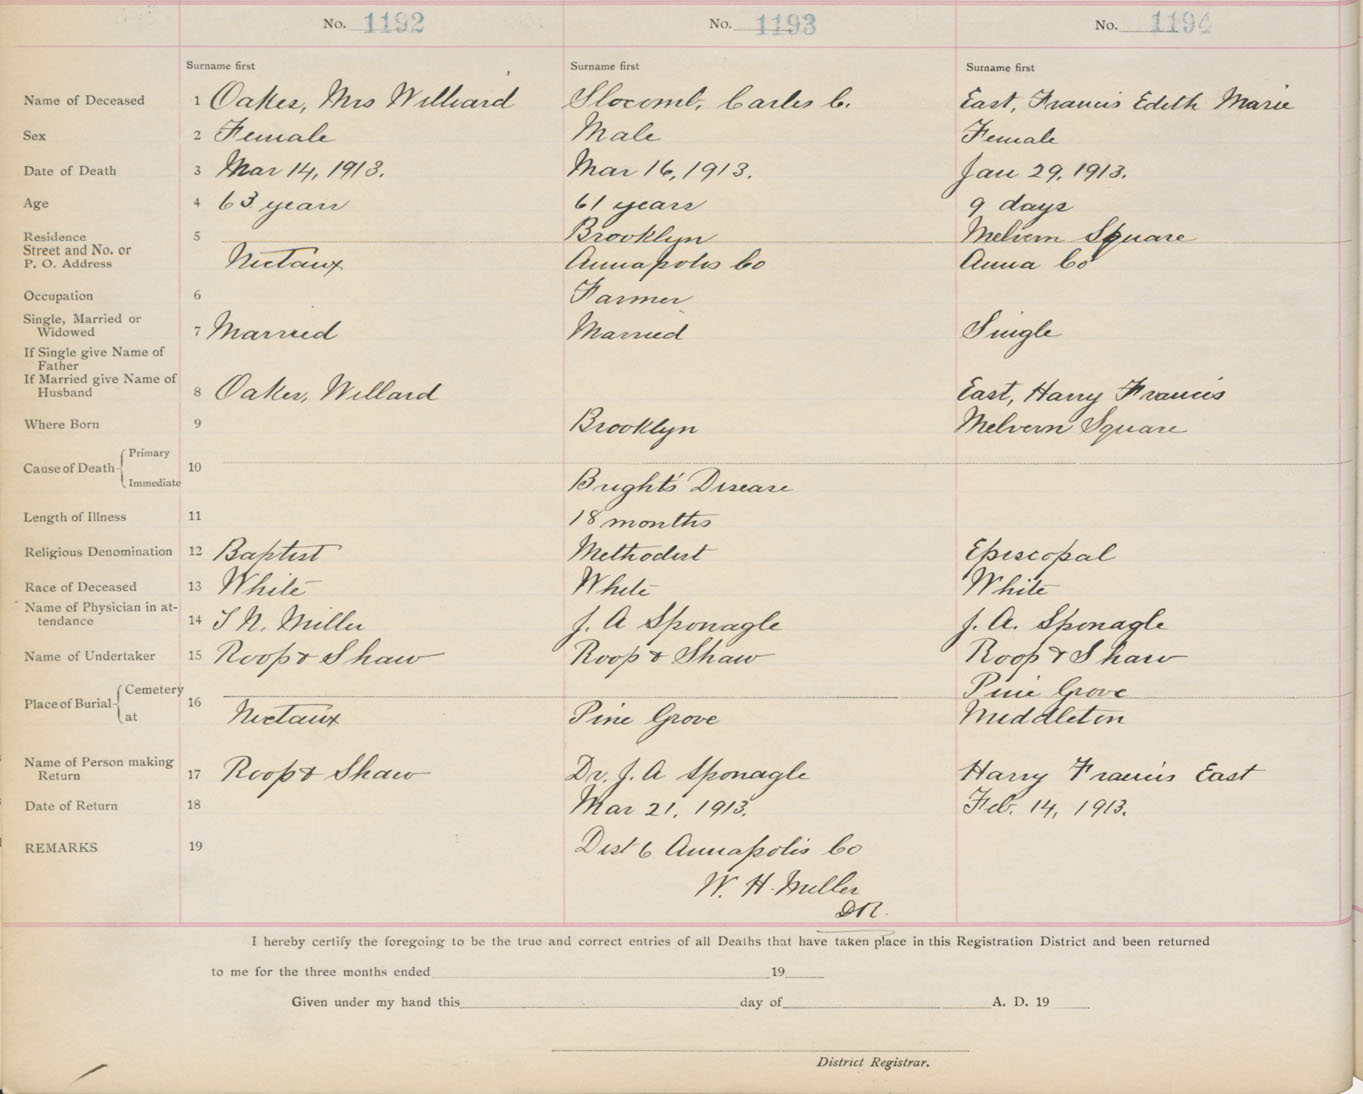 No. 1192 No. 1193 No. 1194
Surname first Surname first Surname first
Name of Deceased 1 Oakes, Mrs Williard Slocomb, Carles C. East, Francis Edith Marie
Sex 2 Female Male Female
Date of Death 3 Mar 14, 1913. Mar 16, 1913. Jan 29, 1913.
Age 4 63 years 61 years 9 days
Residence 5 Brooklyn Melvern Square
Street and No. or
P. O. Address Nictaux Annapolis Co Anna Co
Occupation 6 Farmer
Single, Married or
Widowed 7 Married Married Single
If Single give Name of
Father
If Married give Name of
Husband 8 Oakes, Willard East, Harry Francis
Where Born 9 Brooklyn Melvern Square
Cause of Death Primary 10
Immediate Bright's Disease
Length of Illness 11 18 months
Religious Denomination 12 Baptist Methodist Episcopal
Race of Deceased 13 White White White
Name of Physician in at-
tendance 14 J. A Sponagle J. A. Sponagle
Name of Undertaker 15 Roop & Shaw Roop & Shaw Roop & Shaw
Place of Burial Cemetery 16 Pine Grove
at Nictaux Pine Grove Middleton
Name of Person making
Return 17 Roop & Shaw Dr. J. A Sponagle Harry Francis East
Date of Return 18 Mar 21, 1913. Feb. 14, 1913.
REMARKS 19 Dist 6 Annapolis Co
W. H. Miller
DR.
I hereby certify the foregoing to be the true and correct entries of all Deaths that have taken place in this Registration District and been returned
to me for the three months ended 19
Given under my hand this day of A. D. 19
District Registrar.